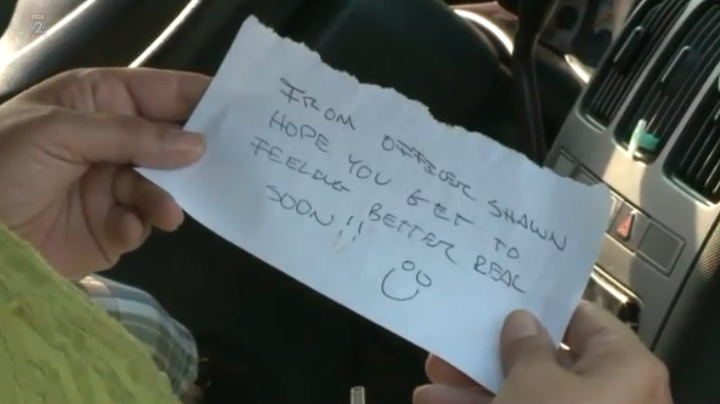 FROM OFFICER SHAWN
HOPE YOU GET TO
FEELING BETTER REAL
SOON!!
2